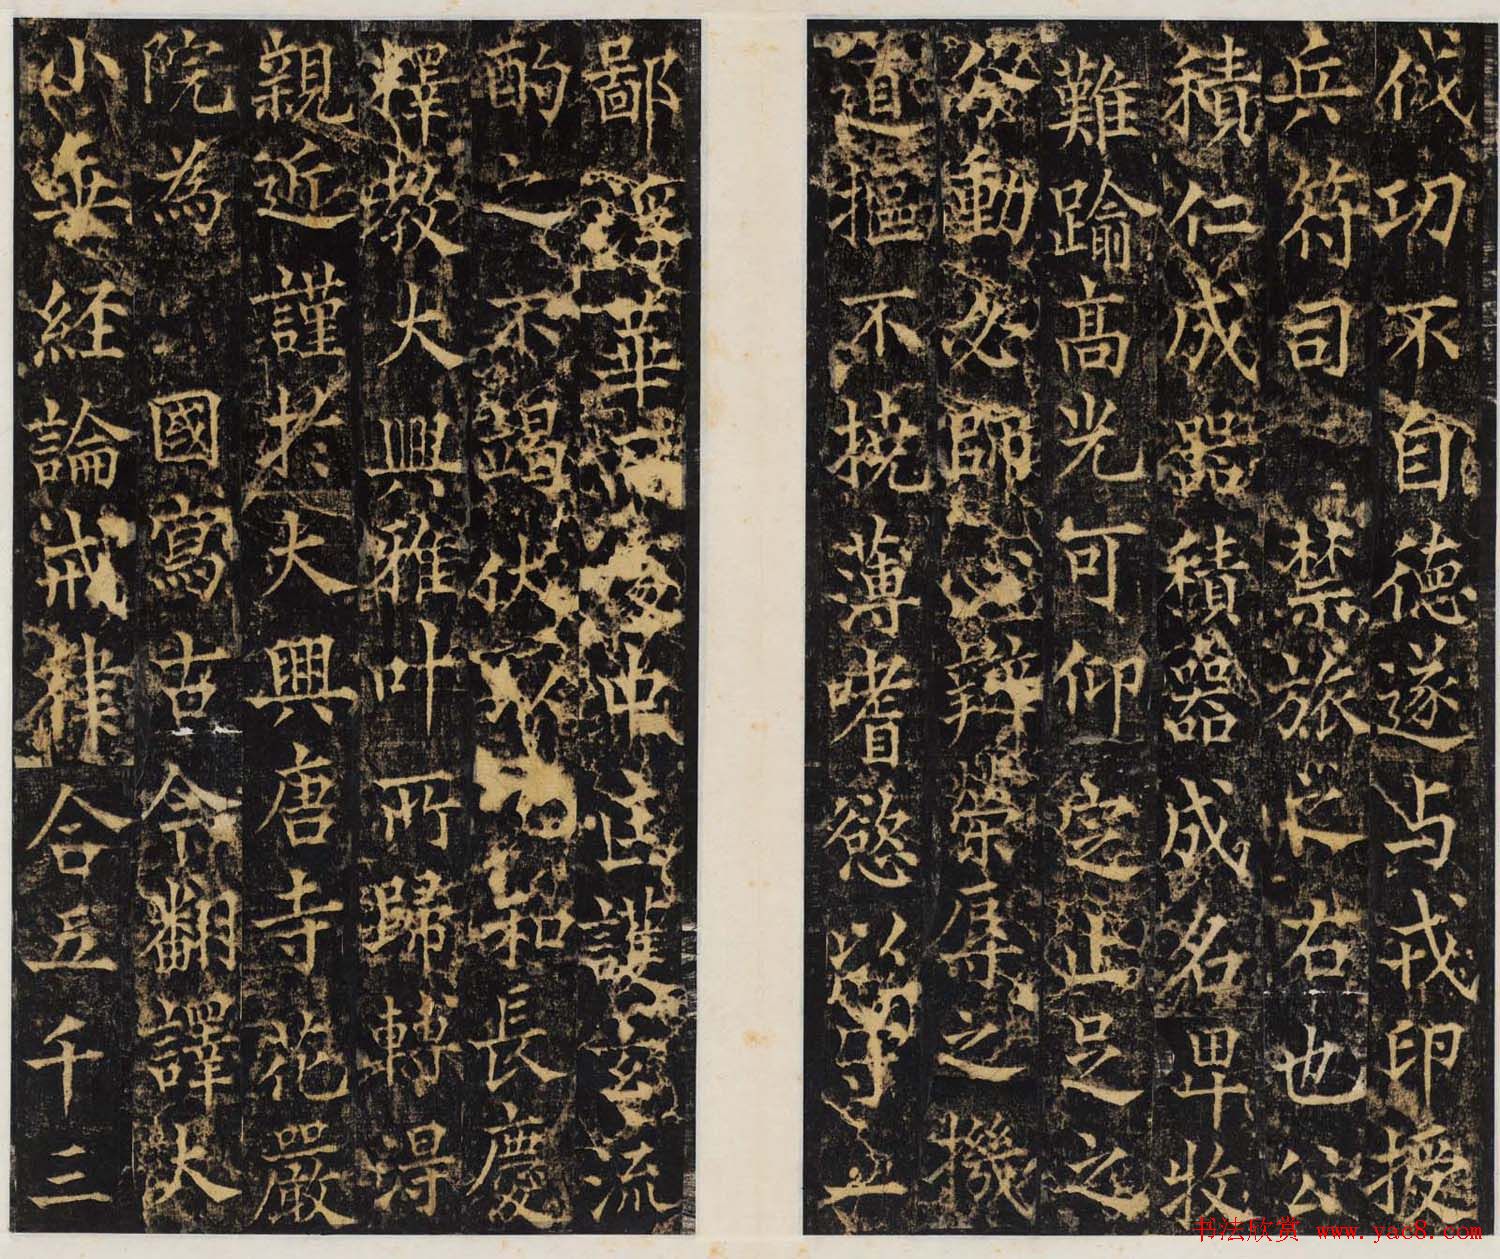 伐功不自德遂与戎印授
兵符司禁旅之右也公
積仁成器積器成名卑牧
難踰高光可仰定止足之
分動必師心辯榮辱之機
道樞不撓薄嗜慾以守
鄙浮華受中主護玄流
酌之不竭伏以和長慶
擇教大興雅叶所歸轉得
親近謹於大興唐寺花嚴
院為國寫古今翻譯大
小乘經論戒律合五千三
书法欣赏 www.yac8.com